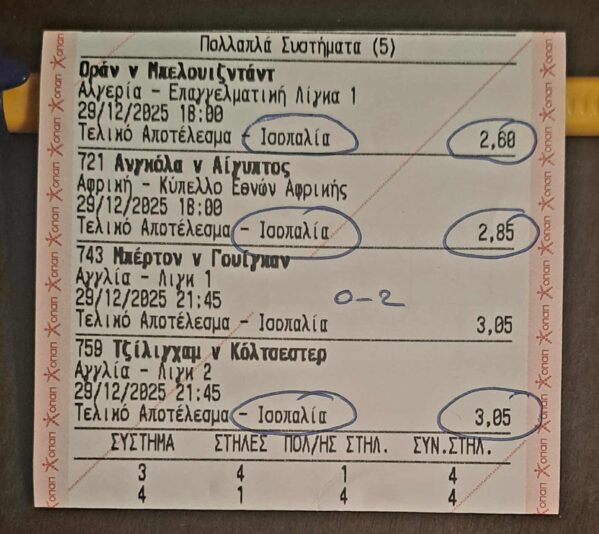 Πολλαπλά Συστήματα (5)
Οράν v Μπελουιζντάντ
Αλγερία - Επαγγελματική Λίγκα 1
29/12/2025 18:00
Τελικό Αποτέλεσμα - Ισοπαλία 2,60
721 Ανγκόλα v Αίγυπτος
Αφρική - Κύπελλο Εθνών Αφρικής
29/12/2025 18:00
Τελικό Αποτέλεσμα - Ισοπαλία 2,85
743 Μπέρτον v Γουίγκαν
Αγγλία - Λιγκ 1
29/12/2025 21:45 0-2
Τελικό Αποτέλεσμα - Ισοπαλία 3,05
759 Τζίλιγχαμ v Κόλτσεστερ
Αγγλία - Λιγκ 2
29/12/2025 21:45
Τελικό Αποτέλεσμα - Ισοπαλία 3,05
ΣΥΣΤΗΜΑ ΣΤΗΛΕΣ ΠΟΛ/ΗΣ ΣΤΗΛ. ΣΥΝ.ΣΤΗΛ.
3 4 1 4
4 1 4 4